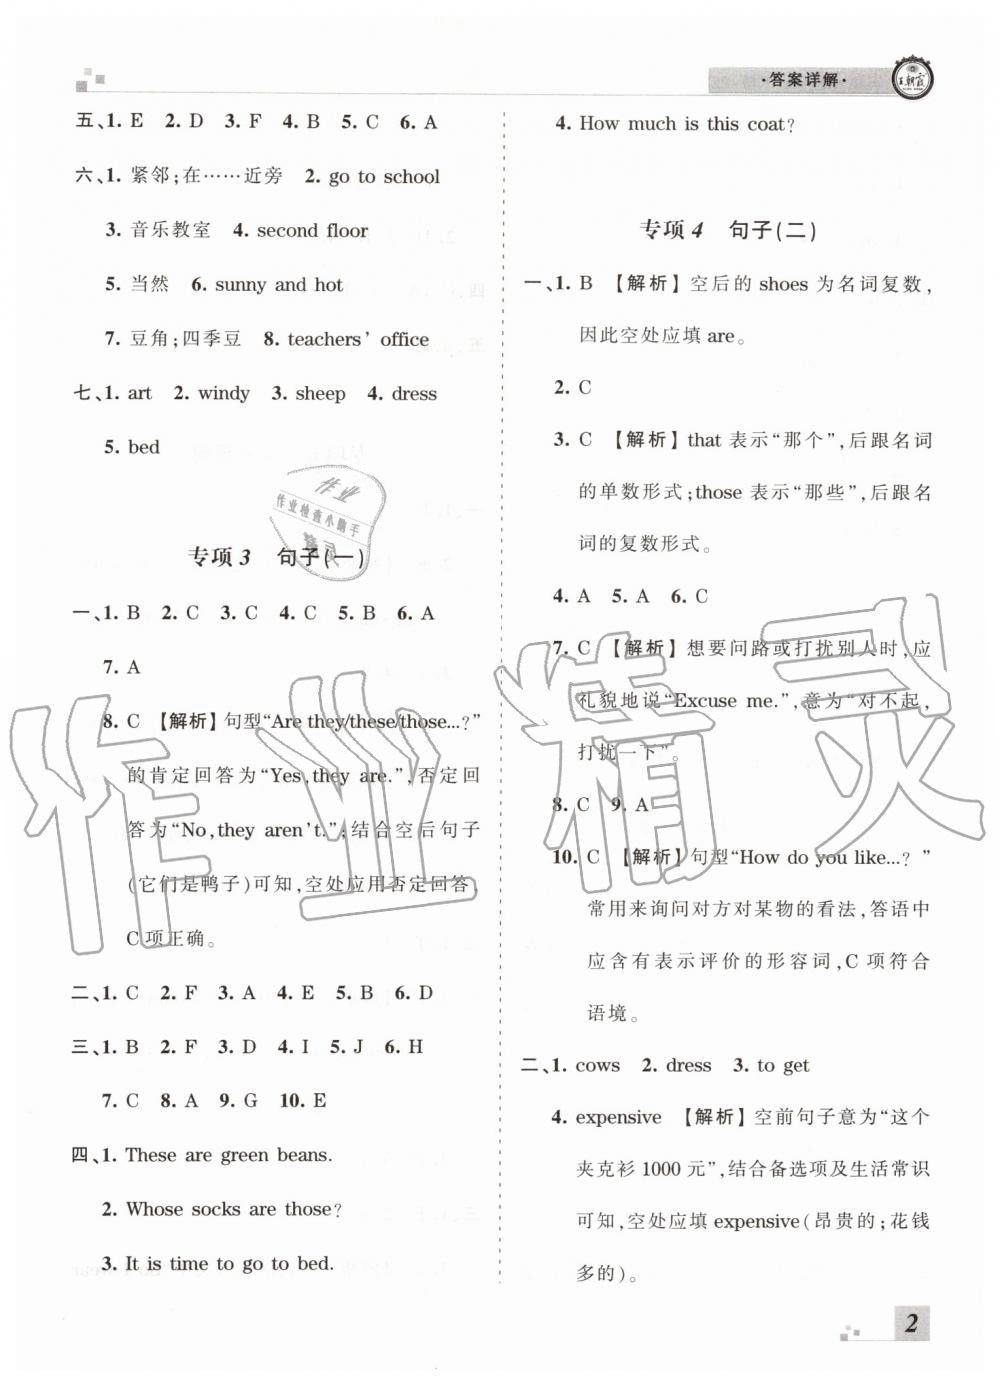 ·答案详解·
王朝霞
五、1. E 2. D 3. F 4. B 5. C 6. A
六、1. 紧邻;在……近旁 2. go to school
3. 音乐教室 4. second floor
5. 当然 6. sunny and hot
7. 豆角;四季豆 8. teachers' office
七、1. art 2. windy 3. sheep 4. dress
5. bed
作业
作业检查小助手
精灵
专项 3 句子(一)
一、1. B 2. C 3. C 4. C 5. B 6. A
7. A
8. C 【解析】句型“Are they/these/those...?”
的肯定回答为“Yes, they are.”,否定回
答为“No, they aren't.”;结合空后句子
(它们是鸭子)可知,空处应用否定回答,
C 项正确。
二、1. C 2. F 3. A 4. E 5. B 6. D
三、1. B 2. F 3. D 4. I 5. J 6. H
7. C 8. A 9. G 10. E
四、1. These are green beans.
2. Whose socks are those?
3. It is time to go to bed.
4. How much is this coat?
专项 4 句子(二)
一、1. B 【解析】空后的 shoes 为名词复数,
因此空处应填 are。
2. C
3. C 【解析】that 表示“那个”,后跟名词
的单数形式;those 表示“那些”,后跟名
词的复数形式。
4. A 5. A 6. C
7. C 【解析】想要问路或打扰别人时,应
礼貌地说“Excuse me.”,意为“对不起,
打扰一下”。
8. C 9. A
10. C 【解析】句型“How do you like...?”
常用来询问对方对某物的看法,答语中
应含有表示评价的形容词,C 项符合
语境。
二、1. cows 2. dress 3. to get
4. expensive 【解析】空前句子意为“这个
夹克衫 1000 元”,结合备选项及生活常识
可知,空处应填 expensive(昂贵的;花钱
多的)。
作业精灵
2